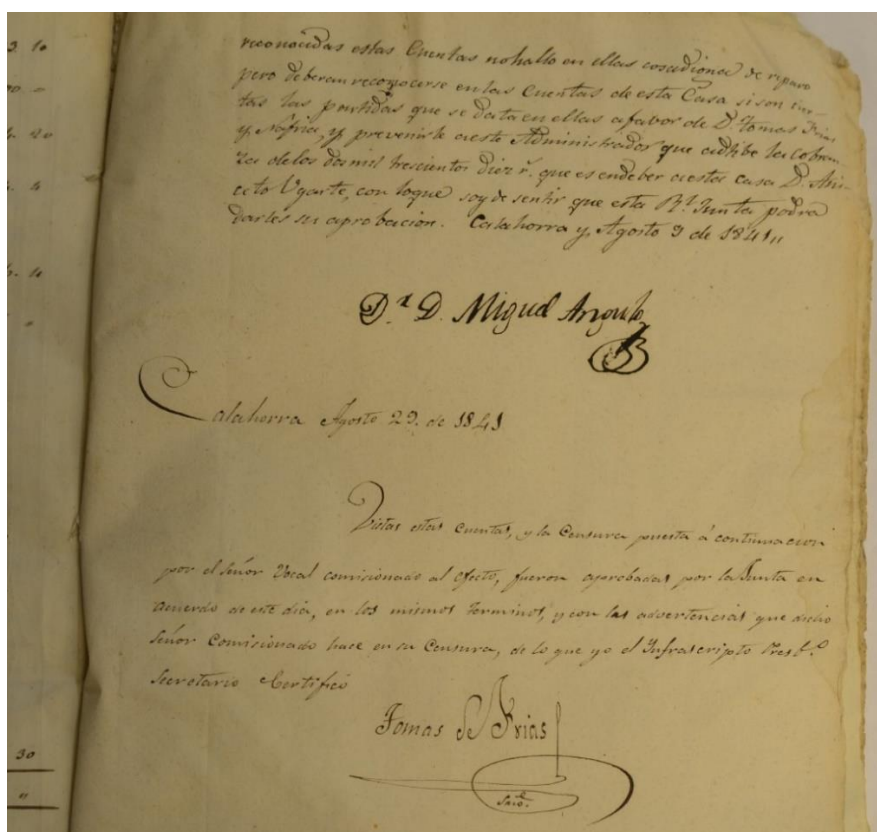 reconocidas estas Cuentas no hallo en ellas cosa digna de reparo
pero deberan reconocerse en las Cuentas de esta Casa si son
tas las partidas que se data en ellas a fabor de D. Tomas Frias
y, Nafria, y prevenirle a este Administrador que adtibe la cobran
za de los dos mil trescientos diez r.^s que es en deber a esta casa D. Ani-
ceto Ugarte, con lo que soy de sentir que esta R.^l Junta podra
darles su aprobacion. Calahorra y, Agosto 9 de 1841,,
D.^r D. Miguel Angulo
Calahorra Agosto 29. de 1841
Vistas estas cuentas, y la Censura puesta á continuacion
por el Señor Vocal comisionado al efecto, fueron aprobadas por la Junta en
acuerdo de este dia, en los mismos terminos, y con las advertencias que dicho
Señor Comisionado hace en su Censura, de lo que yo el Infrascripto Presb.^o
Secretario Certifico
Tomas de Frias
Srio.
9. 10
20
30